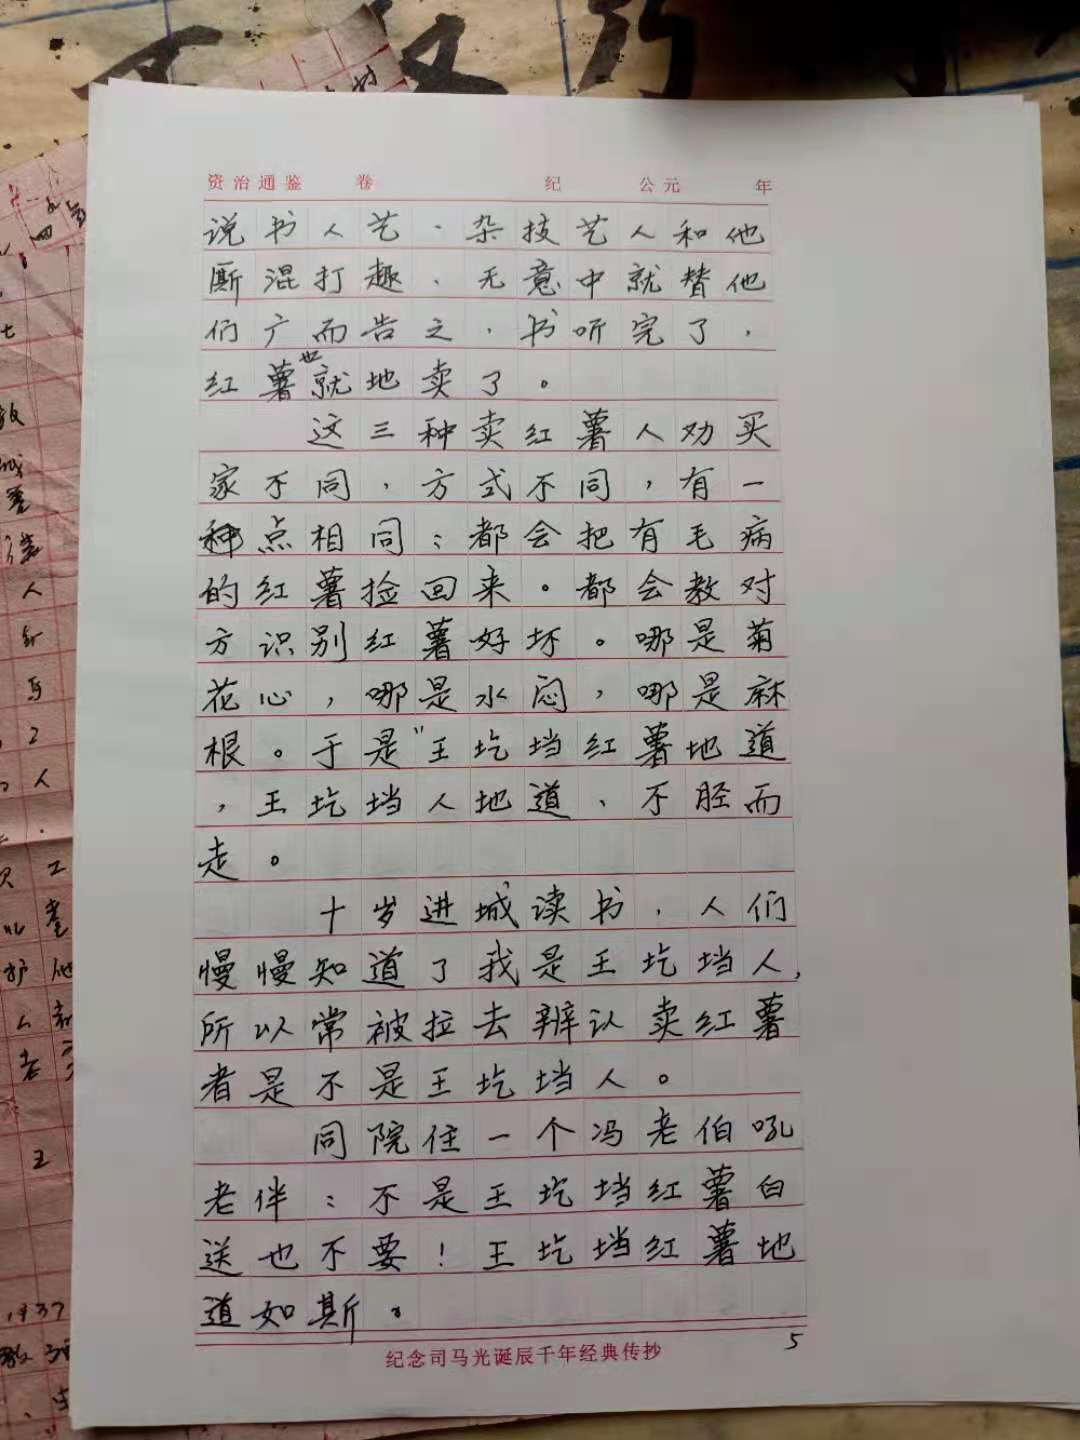 资治通鉴 卷 纪 公元 年
说书人艺、杂技艺人和他
厮混打趣、无意中就替他
们广而告之，书听完了，
红薯也就地卖了。
这三种卖红薯人劝买
家不同，方式不同，有一
种点相同：都会把有毛病
的红薯捡回来。都会教对
方识别红薯好坏。哪是菊
花心，哪是水闷，哪是麻
根。于是“王圪垱红薯地道
，王圪垱人地道、不胫而
走。
十岁进城读书，人们
慢慢知道了我是王圪垱人，
所以常被拉去辨认卖红薯
者是不是王圪垱人。
同院住一个冯老伯吼
老伴：不是王圪垱红薯白
送也不要！王圪垱红薯地
道如斯。
5
纪念司马光诞辰千年经典传抄
1937